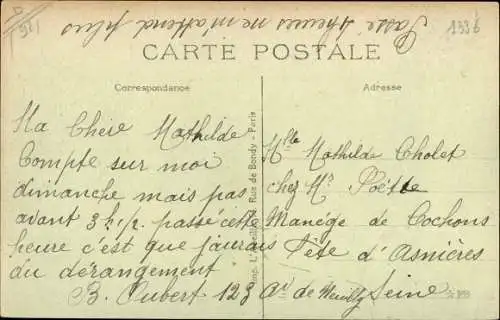 Passé 4 heures ne m'attend plus
1336
CARTE POSTALE
Correspondance
Adresse
Ma Chère Mathilde
Compte sur moi
dimanche mais pas
avant 3 h 1/2 passé cette
heure c'est que j'aurais
du dérangement
B. Oubert
Mlle Mathilde Cholet
chez Mr Poëtte
Manége de Cochons
Fête d'Asnières
123 Av de Neuilly Seine
Rue de Bondy - Paris